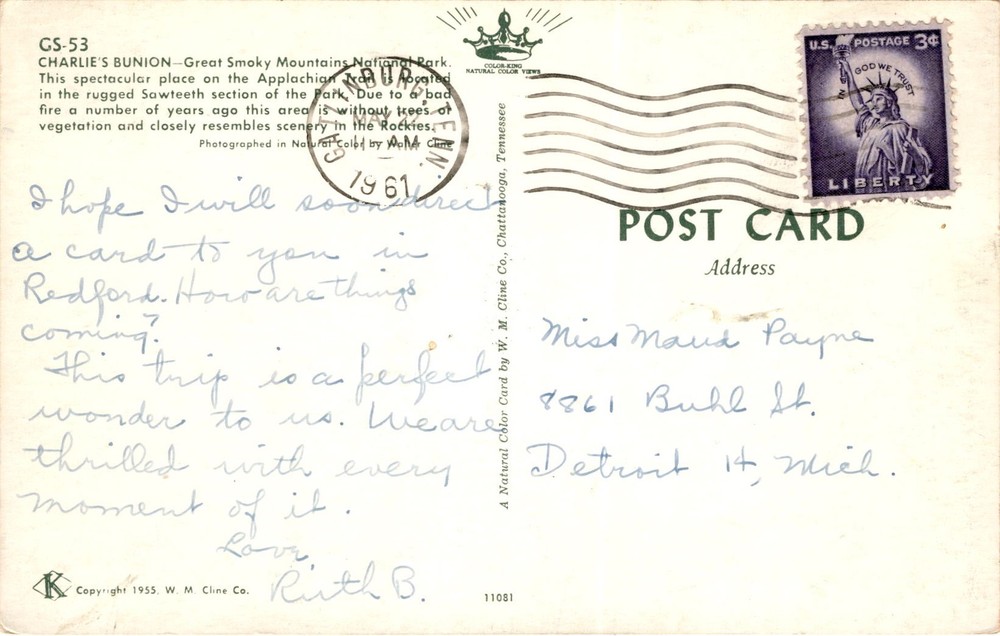 GS-53
CHARLIE'S BUNION—Great Smoky Mountains National Park.
This spectacular place on the Applachian Trail is located
in the rugged Sawteeth section of the Park. Due to a bad
fire a number of years ago this area is without trees of
vegetation and closely resembles scenery in the Rockies.
Photographed in Natural Color by Walter Cline
COLOR-KING
NATURAL COLOR VIEWS
GATLINBURG, TENN.
MAY 22
11 AM
1961
U.S. POSTAGE 3¢
IN GOD WE TRUST
LIBERTY
I hope I will soon direct
a card to you in
Redford. How are things
coming?
This trip is a perfect
wonder to us. We are
thrilled with every
moment of it.
Love
Ruth B.
A Natural Color Card by W. M. Cline Co., Chattanooga, Tennessee
POST CARD
Address
Miss Maud Payne
8861 Buhl St.
Detroit 14, Mich.
K Copyright 1955, W. M. Cline Co.
11081